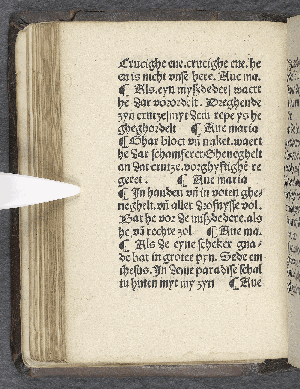 Crucighe ene. crucighe ene. he
en is nicht vnse here. Aue ma.
¶ Als eyn myßdeder waert
he dar vorordelt. Dreghende
zyn crutze myt dem rope ys he
gheghordelt ¶ Aue maria
¶ Ghar bloet vñ naket. waert
he dar schamferer Gheneghelt
an dat crutze. vorghyftighē re
geret. ¶ Aue maria
¶ In handen vñ in voten ghe
neghelt. vñ aller drofnysse vol.
Bat he vor de mißdedere. als
he vñ rechte zol ¶ Aue ma.
¶ Als de eyne scheker gna⸗
de bat in groter pyn. Sede em
ihesus. In deme paradise schal
tu huten myt my zyn ¶ Aue